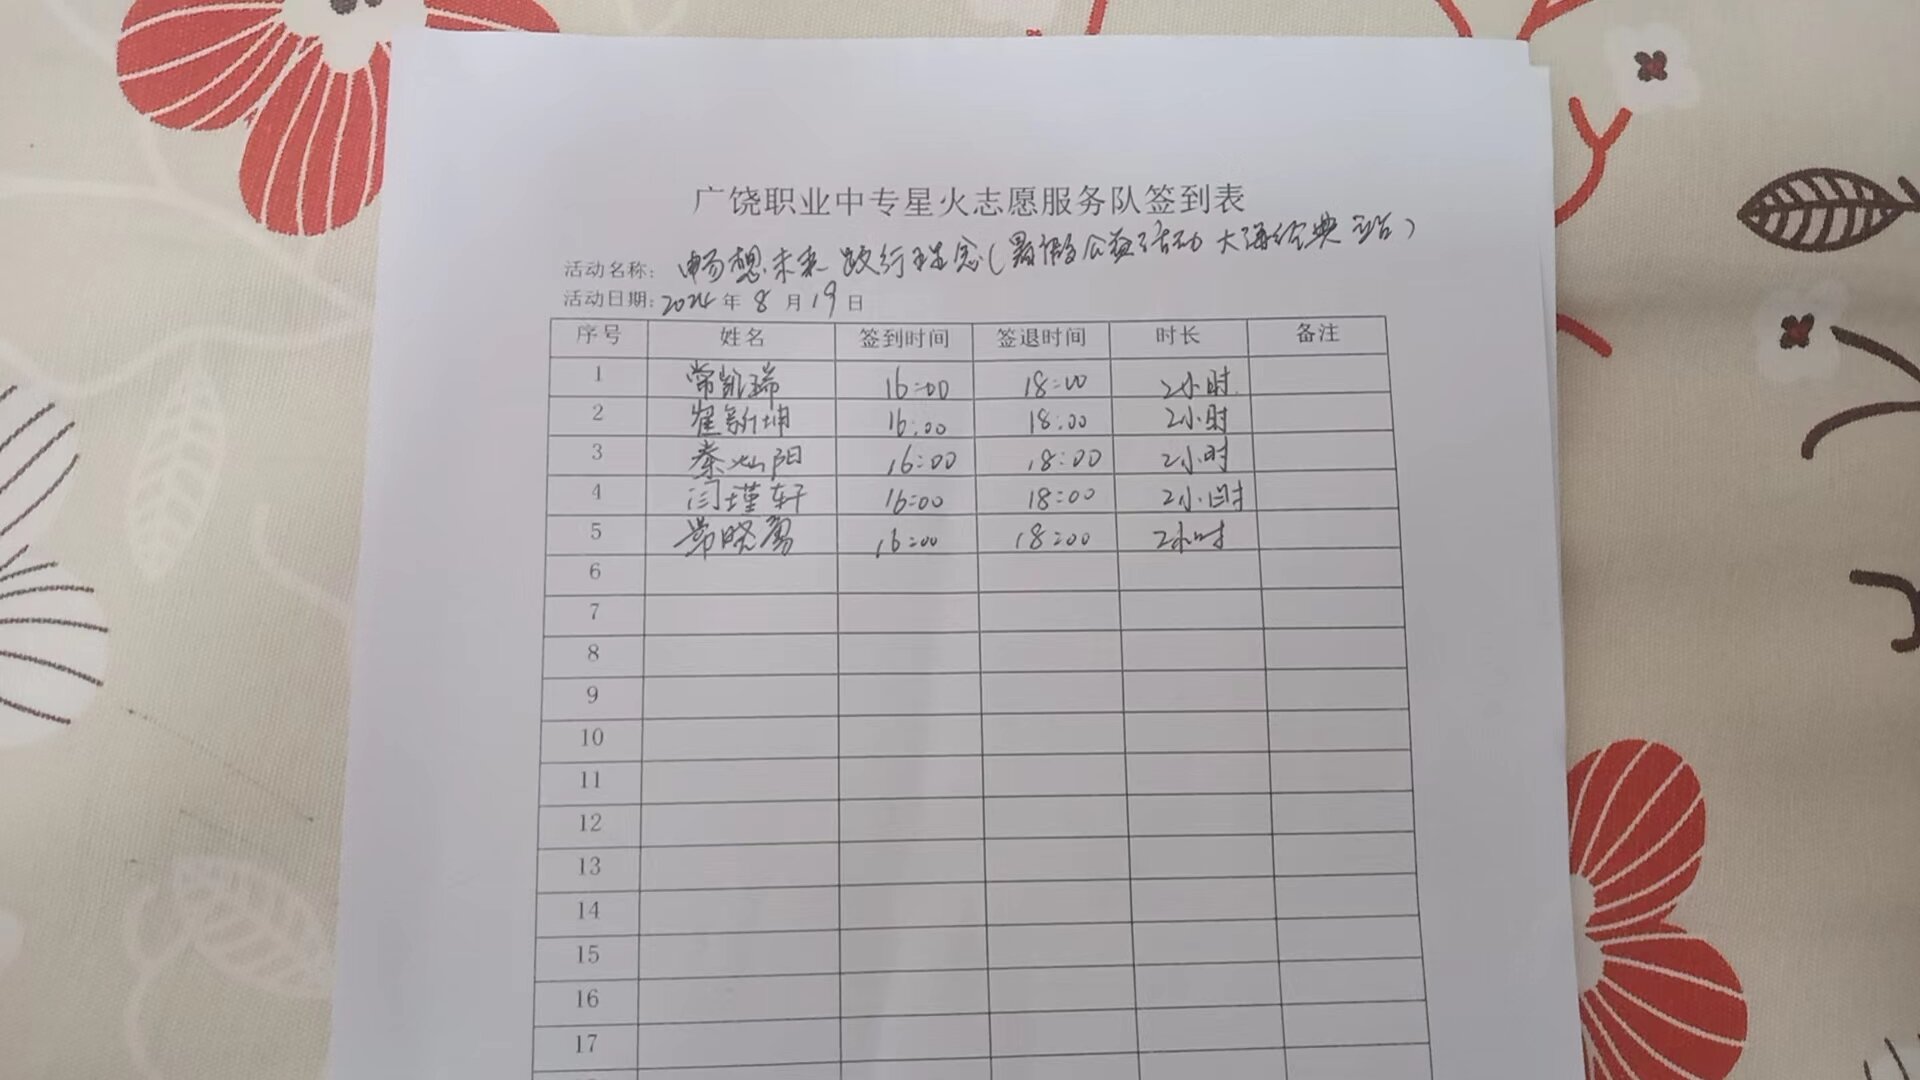 广饶职业中专星火志愿服务队签到表
活动名称: 畅想未来 践行理念(暑假公益活动 大海经典站)
活动日期: 2024年 8 月 19 日
序号 姓名 签到时间 签退时间 时长 备注
1 常凯瑞 16:00 18:00 2小时
2 崔新坤 16:00 18:00 2小时
3 秦灿阳 16:00 18:00 2小时
4 闫瑾轩 16:00 18:00 2小时
5 常晓 16:00 18:00 2小时
6
7
8
9
10
11
12
13
14
15
16
17